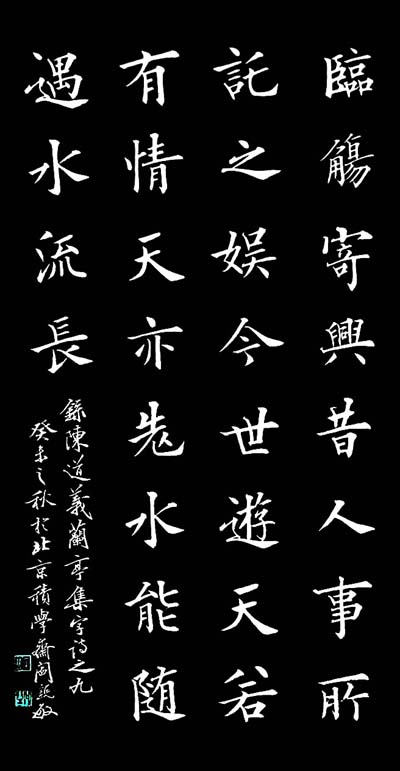 臨觴寄興昔人事所
託之娱今世遊天若
有情天亦老水能随
遇水流長
錄陳道義蘭亭集字诗之九
癸未之秋於北京積學齋